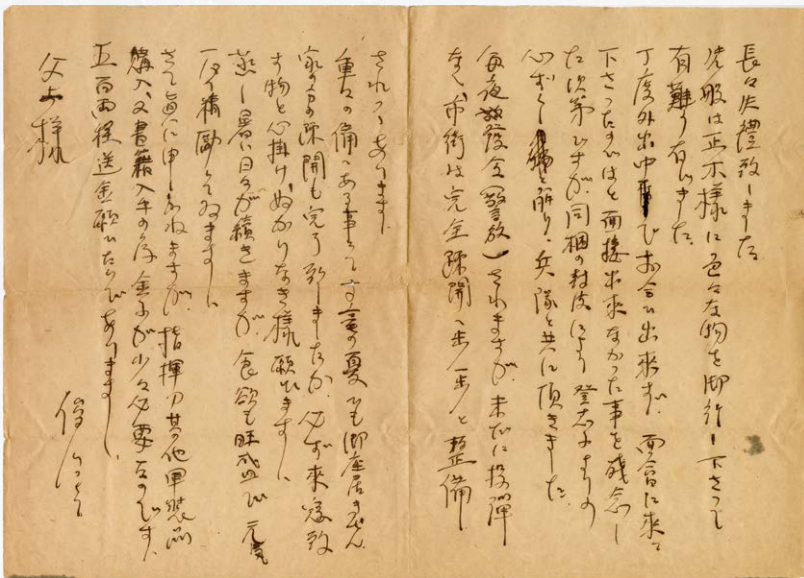 長々失禮致しました
先般は正木様に色々な物を御托し下さって
有難う存じました。
丁度外出中でお会ひ出来ず、面會に来て
下さったのではと面接出来なかった事を残念し
た次第ですが、同梱の封皮により登志子よりの
心づくしと解り、兵隊と共に頂きました。
毎夜發令(警放)されますが、未だに投弾
なく、市街は完全疎開へ一歩一歩と整備
されつゝあります。
重々の備へある事とて一言の憂ひも御座居ません。
家の方の疎開も完了致しましたか、必ず來襲致
す物と心掛け、ぬかりなき様願ひます。
蒸し暑い日々が續きますが、食欲も旺盛で元気
一杯精勵してゐます。
さて眞に申し兼ねますが、指揮刀其の他軍装品
購入、又書籍入手の為金子が少々必要なのです。
五百両程送金願ひたいであります。
父上様